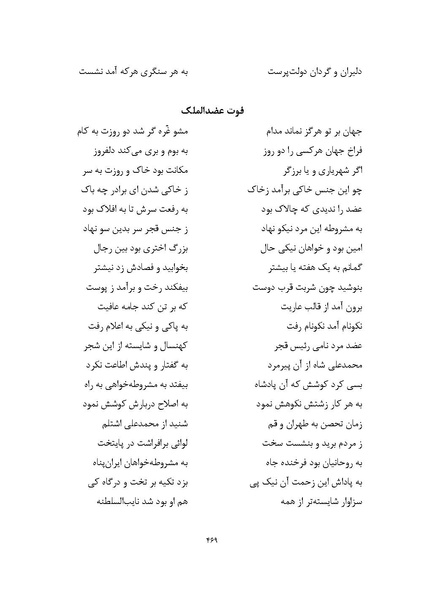 دلیران و گردان دولت‌پرست به هر سنگری هرکه آمد نشست
فوت عضدالملک
جهان بر تو هرگز نماند مدام مشو غّره گر شد دو روزت به کام
فراخ جهان هرکسی را دو روز به بوم و بری می‌کند دلفروز
اگر شهریاری و یا برزگر مکانت بود خاک و روزت به سر
چو این جنس خاکی برآمد زخاک ز خاکی شدن ای برادر چه باک
عضد را ندیدی که چالاک بود به رفعت سرش تا به افلاک بود
به مشروطه این مرد نیکو نهاد ز جنس قجر سر بدین سو نهاد
امین بود و خواهان نیکی حال بزرگ اختری بود بین رجال
گمانم به یک هفته یا بیشتر بخوابید و فصادش زد نیشتر
بنوشید چون شربت قرب دوست بیفکند رخت و برآمد ز پوست
برون آمد از قالب عاریت که بر تن کند جامه عافیت
نکونام آمد نکونام رفت به پاکی و نیکی به اعلام رفت
عضد مرد نامی رئیس قجر کهنسال و شایسته از این شجر
محمدعلی شاه از آن پیرمرد به گفتار و پندش اطاعت نکرد
بسی کرد کوشش که آن پادشاه بیفتد به مشروطه‌خواهی به راه
به هر کار زشتش نکوهش نمود به اصلاح دربارش کوشش نمود
زمان تحصن به طهران و قم شنید از محمدعلی اشتلم
ز مردم برید و بنشست سخت لوائی برافراشت در پایتخت
به روحانیان بود فرخنده جاه به مشروطه‌خواهان ایران‌پناه
به پاداش این زحمت آن نیک پی بزد تکیه بر تخت و درگاه کی
سزاوار شایسته‌تر از همه هم او بود شد نایب‌السلطنه
۴۶۹